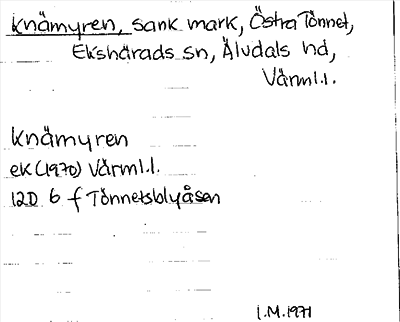 Knämyren, sank mark, Östra Tönnet,
Ekshärads sn, Älvdals hd,
Värml.l.
Knämyren
ek (1970) Värml.l.
12D 6 f Tönnetsblyåsen
I.M. 1971